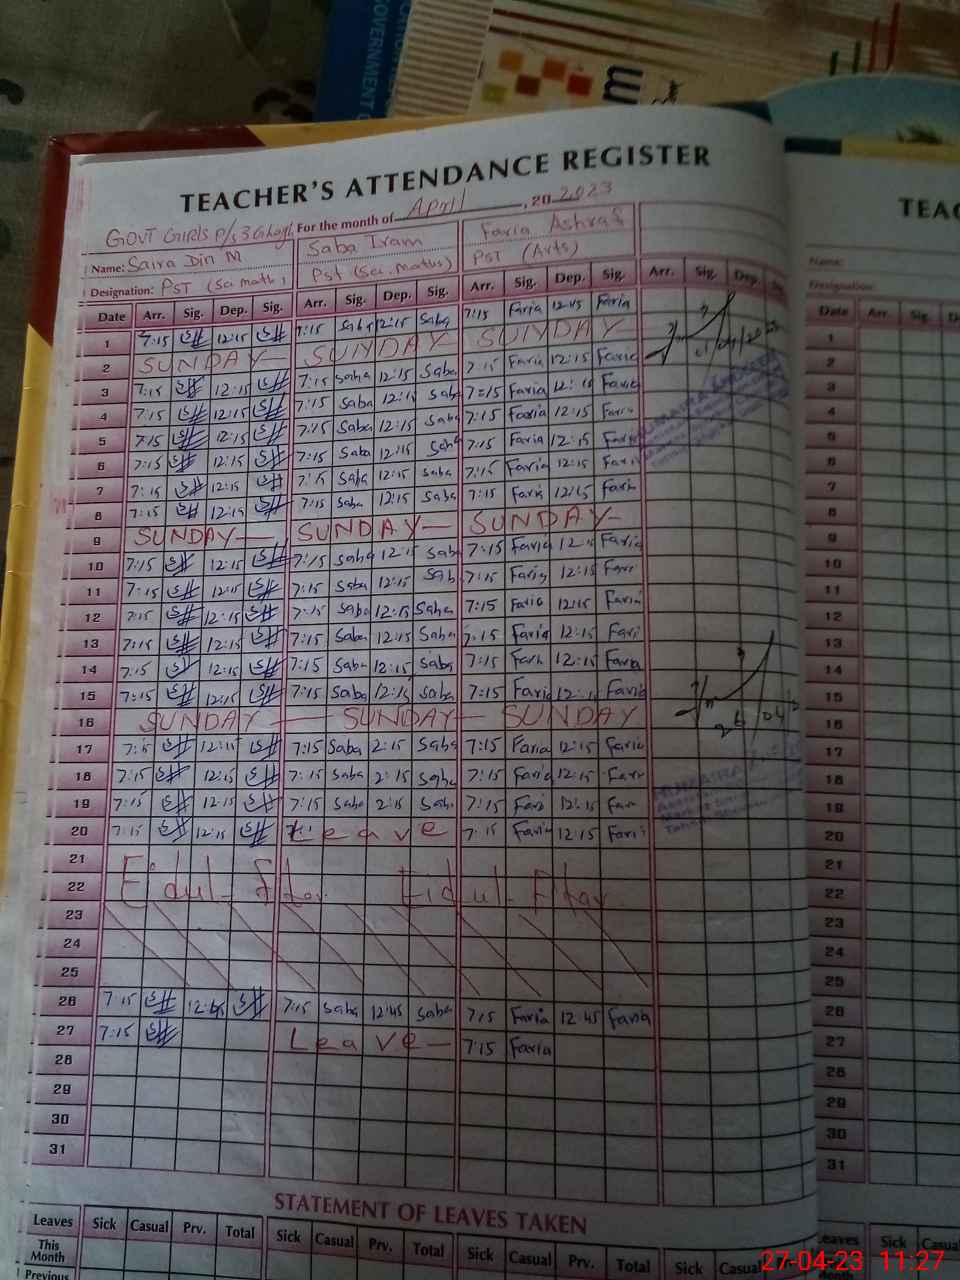 GOVERNMENT
TEACHER'S ATTENDANCE REGISTER
For the month of April, 20 2023
GOVT GIRLS P/S 3
Name: Saira Din M Saba Iram Faria Ashraf
Designation: PST (Sci math) Pst (Sci. maths) PST (Arts)
Date Arr. Sig. Dep. Sig. Arr. Sig. Dep. Sig. Arr. Sig. Dep. Sig. Arr. Sig. Dep.
1 7:15 12:15 7:15 Saba 12:15 Saba 7:15 Faria 12:15 Faria
2 SUNDAY SUNDAY SUNDAY
3 7:15 12:15 7:15 Saba 12:15 Saba 7:15 Faria 12:15 Faria
4 7:15 12:15 7:15 Saba 12:15 Saba 7:15 Faria 12:15 Faria
5 7:15 12:15 7:15 Saba 12:15 Saba 7:15 Faria 12:15 Faria
6 7:15 12:15 7:15 Saba 12:15 Saba 7:15 Faria 12:15 Faria
7 7:15 12:15 7:15 Saba 12:15 Saba 7:15 Faria 12:15 Faria
8 7:15 12:15 7:15 Saba 12:15 Saba 7:15 Faria 12:15 Faria
9 SUNDAY SUNDAY SUNDAY
10 7:15 12:15 7:15 Saba 12:15 Saba 7:15 Faria 12:15 Faria
11 7:15 12:15 7:15 Saba 12:15 Sab 7:15 Faria 12:15 Fari
12 7:15 12:15 7:15 Saba 12:15 Saba 7:15 Faria 12:15 Faria
13 7:15 12:15 7:15 Saba 12:15 Saba 7:15 Faria 12:15 Fari
14 7:15 12:15 7:15 Saba 12:15 Saba 7:15 Faria 12:15 Faria
15 7:15 12:15 7:15 Saba 12:15 Saba 7:15 Faria 12:15 Faria
16 SUNDAY SUNDAY SUNDAY
17 7:15 12:15 7:15 Saba 2:15 Saba 7:15 Faria 12:15 Faria
18 7:15 12:15 7:15 Saba 2:15 Saba 7:15 Faria 12:15 Fari
19 7:15 12:15 7:15 Saba 2:15 Saba 7:15 Fari 12:15 Far
20 7:15 12:15 Leave 7:15 Faria 12:15 Fari
21
22 Eidul-Fitar Eidul-Fitar
23
24
25
26 7:15 12:45 7:15 Saba 12:45 Saba 7:15 Faria 12:45 Faria
27 7:15 Leave 7:15 Faria
28
29
30
31
STATEMENT OF LEAVES TAKEN
Leaves Sick Casual Prv. Total Sick Casual Prv. Total Sick Casual Prv. Total Sick Casual
This Month
Previous
TEAC
Name:
Designation:
Date Arr. Sig. D
1
2
3
4
5
6
7
8
9
10
11
12
13
14
15
16
17
18
19
20
21
22
23
24
25
26
27
28
29
30
31
Leaves Sick Casua
27-04-23 11:27